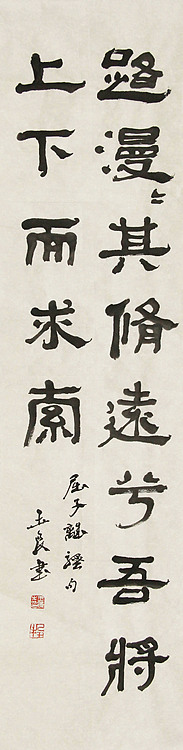 路漫〻其脩遠兮吾將
上下而求索
屈子離騷句
玉良書